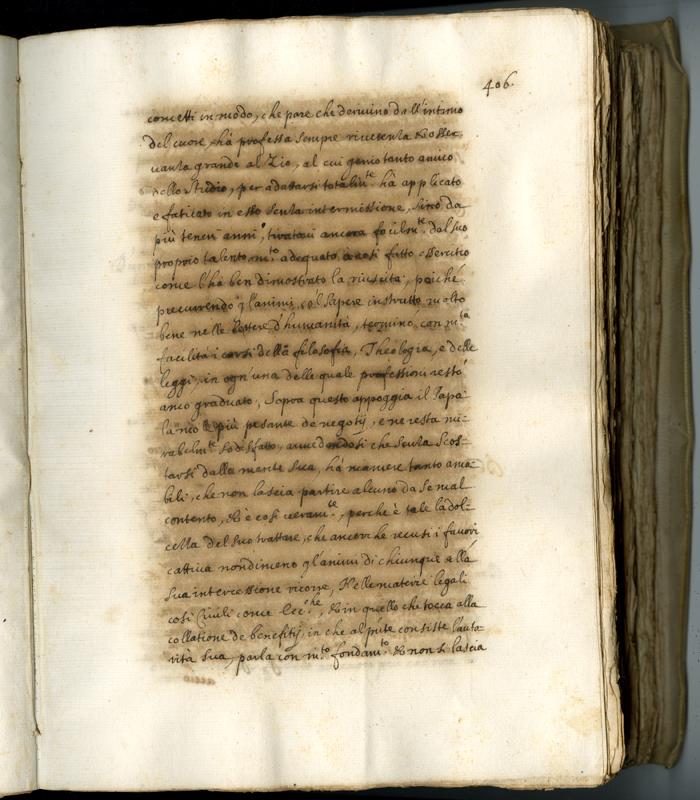 406.
concetti in modo, che pare che derivino dall'intimo
del cuore, hà professa sempre riverenza & osser-
vanza grande al Zio, al cui genio tanto amico
dello Studio, per adattarsi totalm.te hà applicato
e faticato in esso senza intermissione, sino da
più teneri anni, tiratovi ancora facilm.te dal suo
proprio talento m.to adequato à così fatto essercitio
come l'hà ben dimostrato la riuscita, poiche
precorrendo gl'anni, col sapere instrutto molto
bene nelle lettere d'humanità, terminò con m.ta
facilità i corsi della filosofia, Theologia, e delle
leggi, in ogn'una delle quale professioni restò
anco graduato, Sopra questo appoggia il Papa
la più pesante de negotij, e ne resta mi-
rabilm.te sodisfatto, avvedendosi che senza scos-
tarsi dalla mente sua, hà maniere tanto ama-
bili, che non lascia partire alcuno da se mal
contento, & è così veram.te, perche è tale la dol-
cezza del suo trattare, che ancorche recusi i favori
cattiva nondimeno gl'animi di chiunque alla
sua intercessione ricorre, Nelle materie legali
così Civili come Ecc.che, & in quello che tocca alla
collatione de benefitij, in che al pnte consiste l'auto-
rità sua, parla con m.to fondam.to & non si lascia